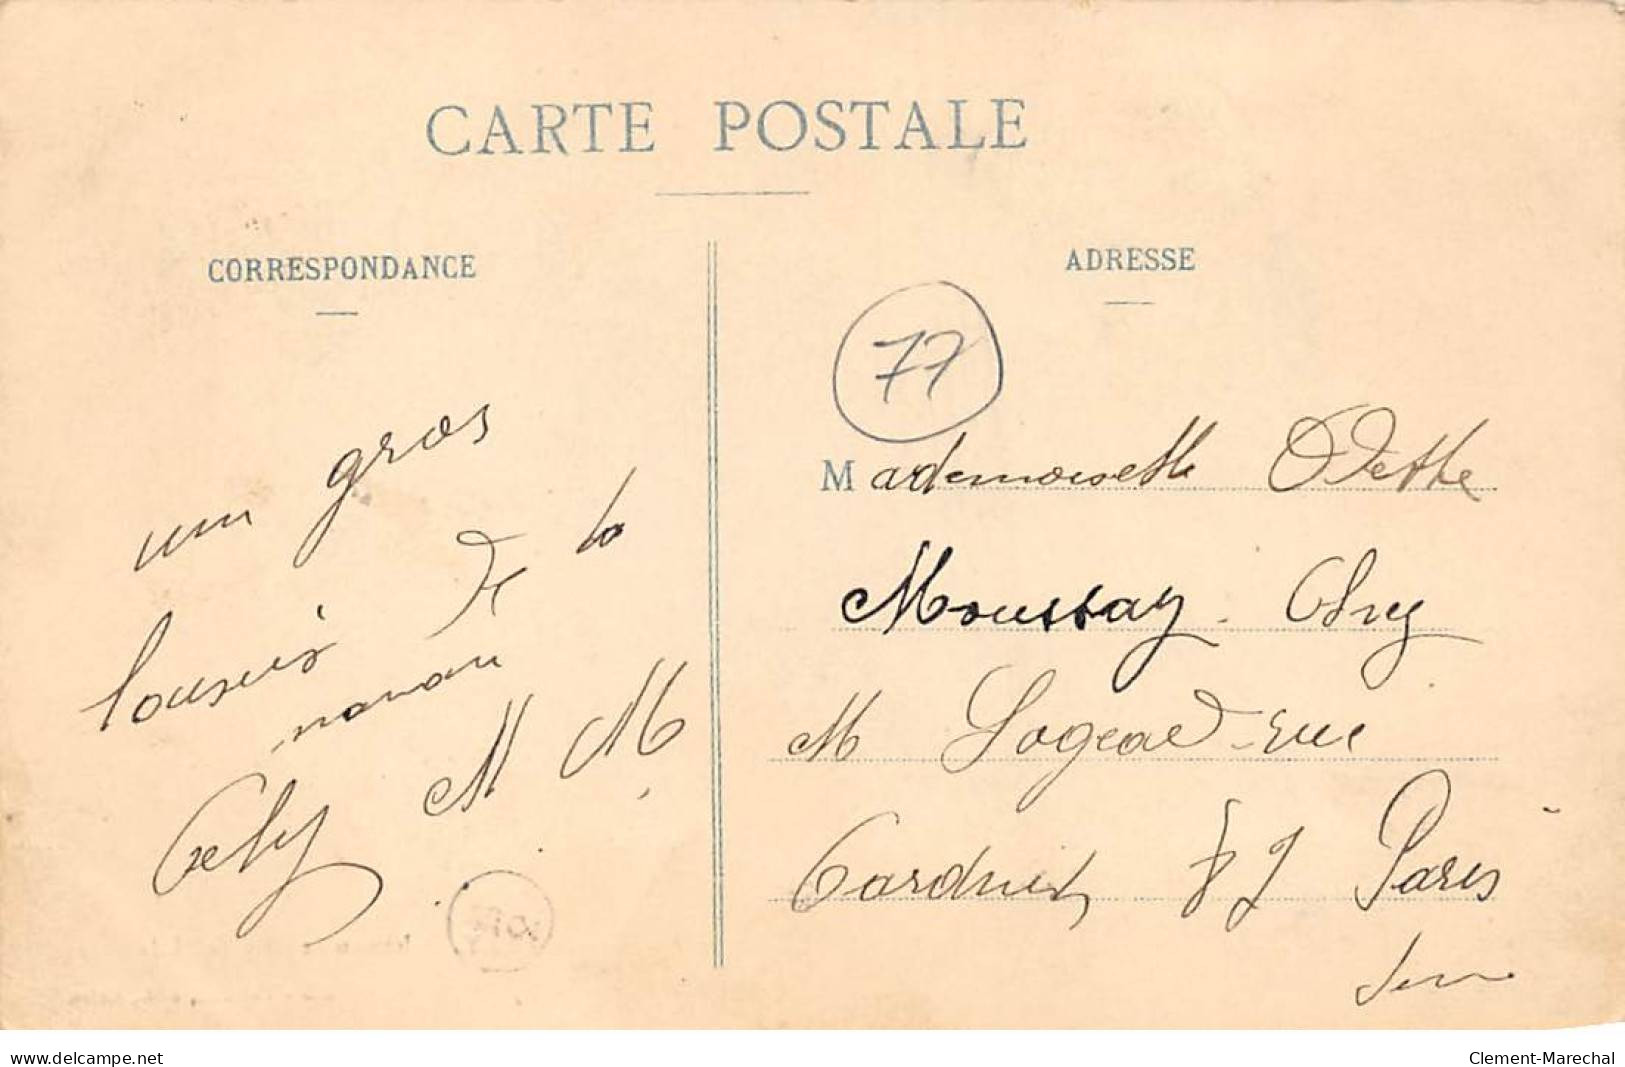 CARTE POSTALE
CORRESPONDANCE
un gros
de la
maman
M M
ADRESSE
77
Mademoiselle Odette
Moussay. Chez
M Logead rue
Cardinet 87 Paris
Seine
www.delcampe.net
Clement-Marechal